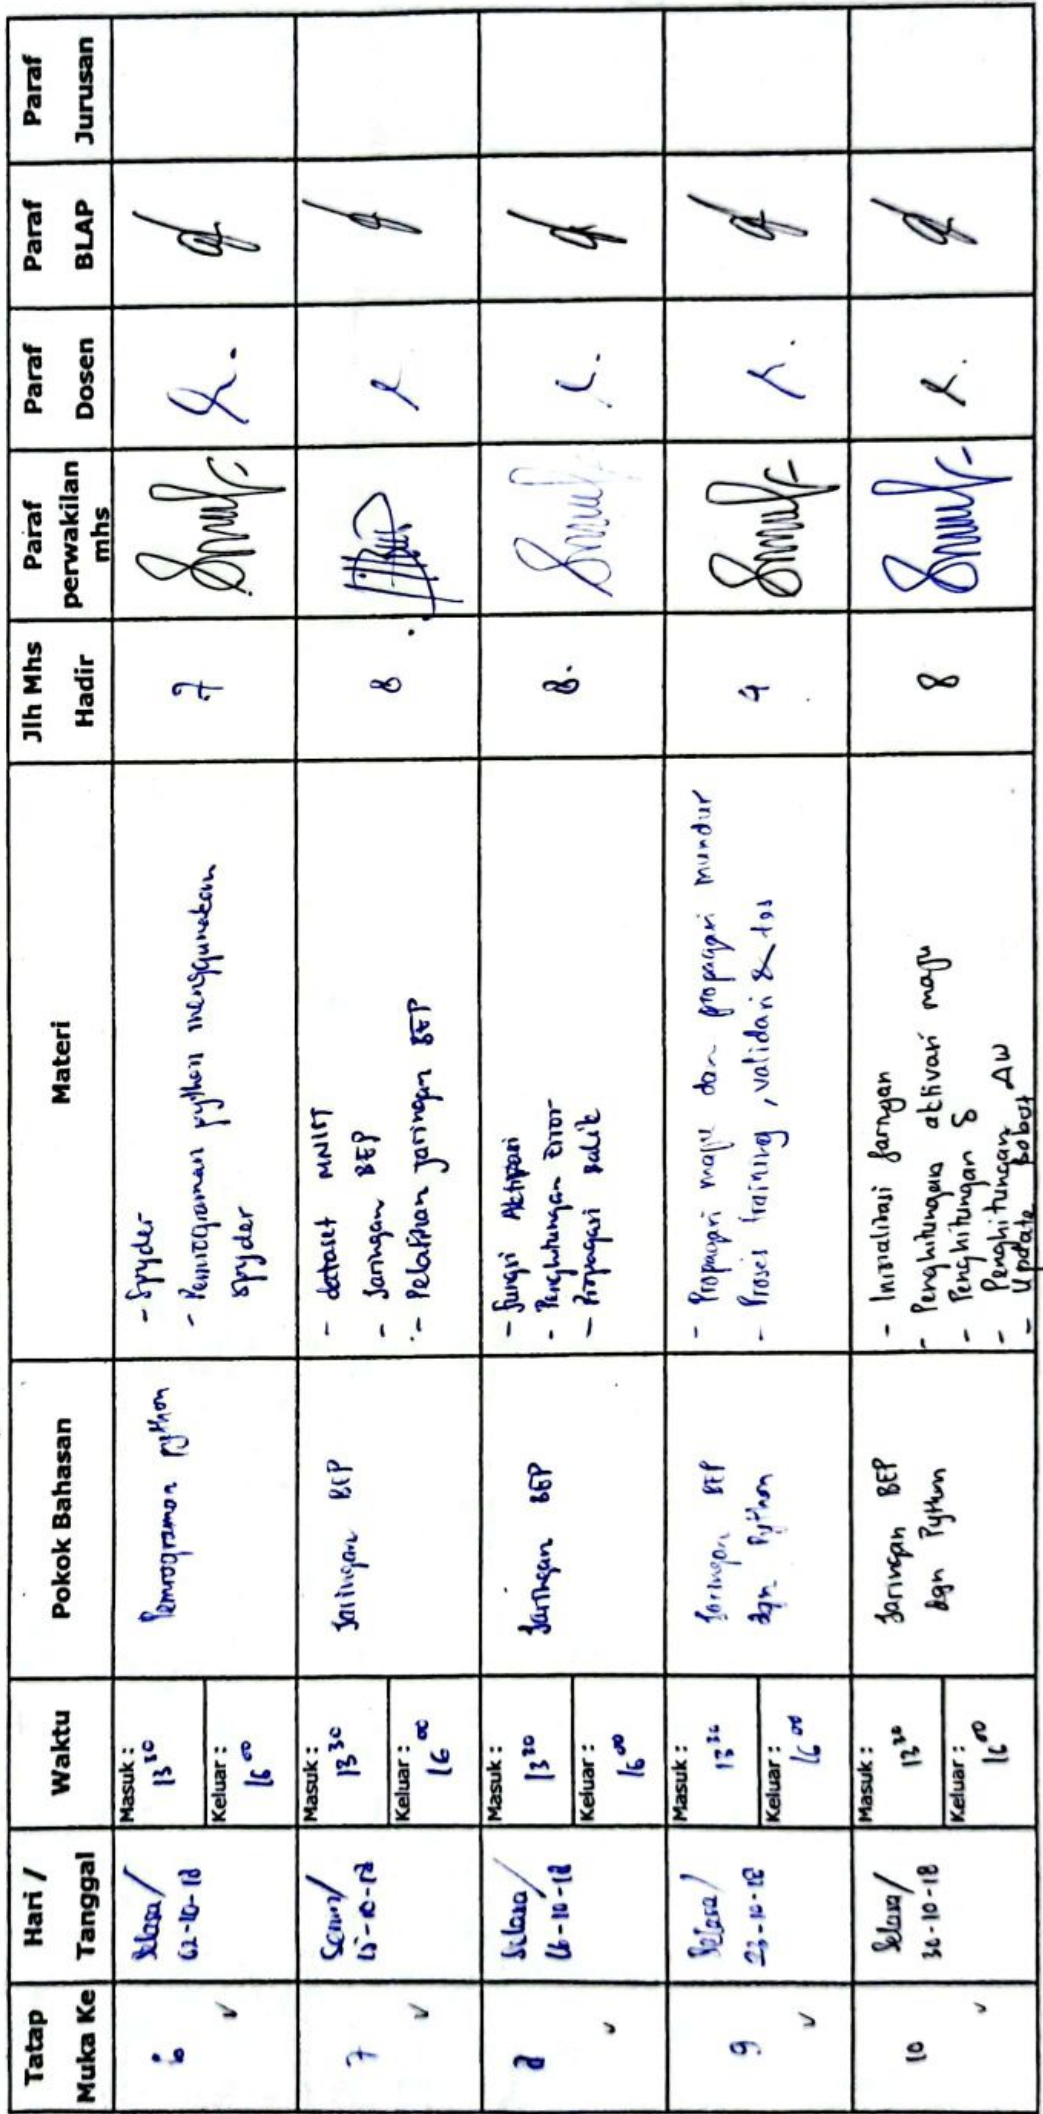 Tatap Muka Ke
Hari / Tanggal
Waktu
Pokok Bahasan
Materi
Jlh Mhs Hadir
Paraf perwakilan mhs
Paraf Dosen
Paraf BLAP
Paraf Jurusan
6
Selasa/
02-10-18
Masuk :
13 30
Keluar :
16 00
Pemrograman python
- Spyder
- Pemrograman python menggunakan
spyder
7
7
Senin/
15-10-18
Masuk :
13 30
Keluar :
16 00
Jaringan BEP
- dataset MNIST
- Jaringan BEP
- Pelatihan jaringan BEP
8
8
Selasa/
16-10-18
Masuk :
13 30
Keluar :
16 00
Jaringan BEP
- Fungsi Aktivasi
- Penghitungan Error
- Propagasi balik
8.
9
Selasa/
23-10-18
Masuk :
13 30
Keluar :
16 00
Jaringan BEP
dgn Python
- Propagasi maju dan propagasi mundur
- Proses training, validasi & tes
4
10
Selasa/
30-10-18
Masuk :
13 30
Keluar :
16 00
Jaringan BEP
dgn Python
- Inisialisasi Jaringan
- Penghitungan aktivasi maju
- Penghitungan δ
- Penghitungan Δw
- Update bobot
8